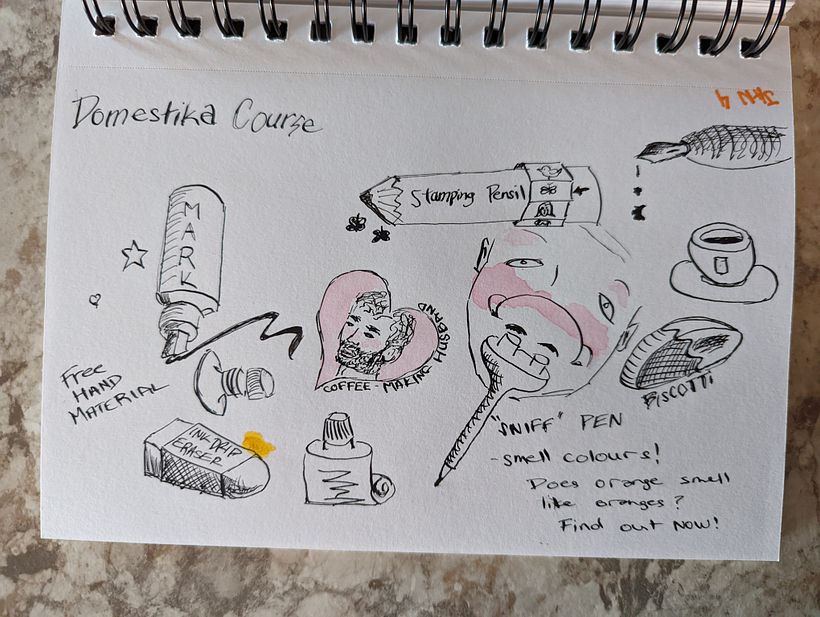 Domestika Course
JAN 4
Stamping Pensil
MARK
COFFEE-MAKING HUSBAND
Free
HAND
MATERIAL
BISCOTTI
INK DRIP
ERASER
"SNIFF" PEN
-smell colours!
Does orange smell
like oranges?
Find out NOW!